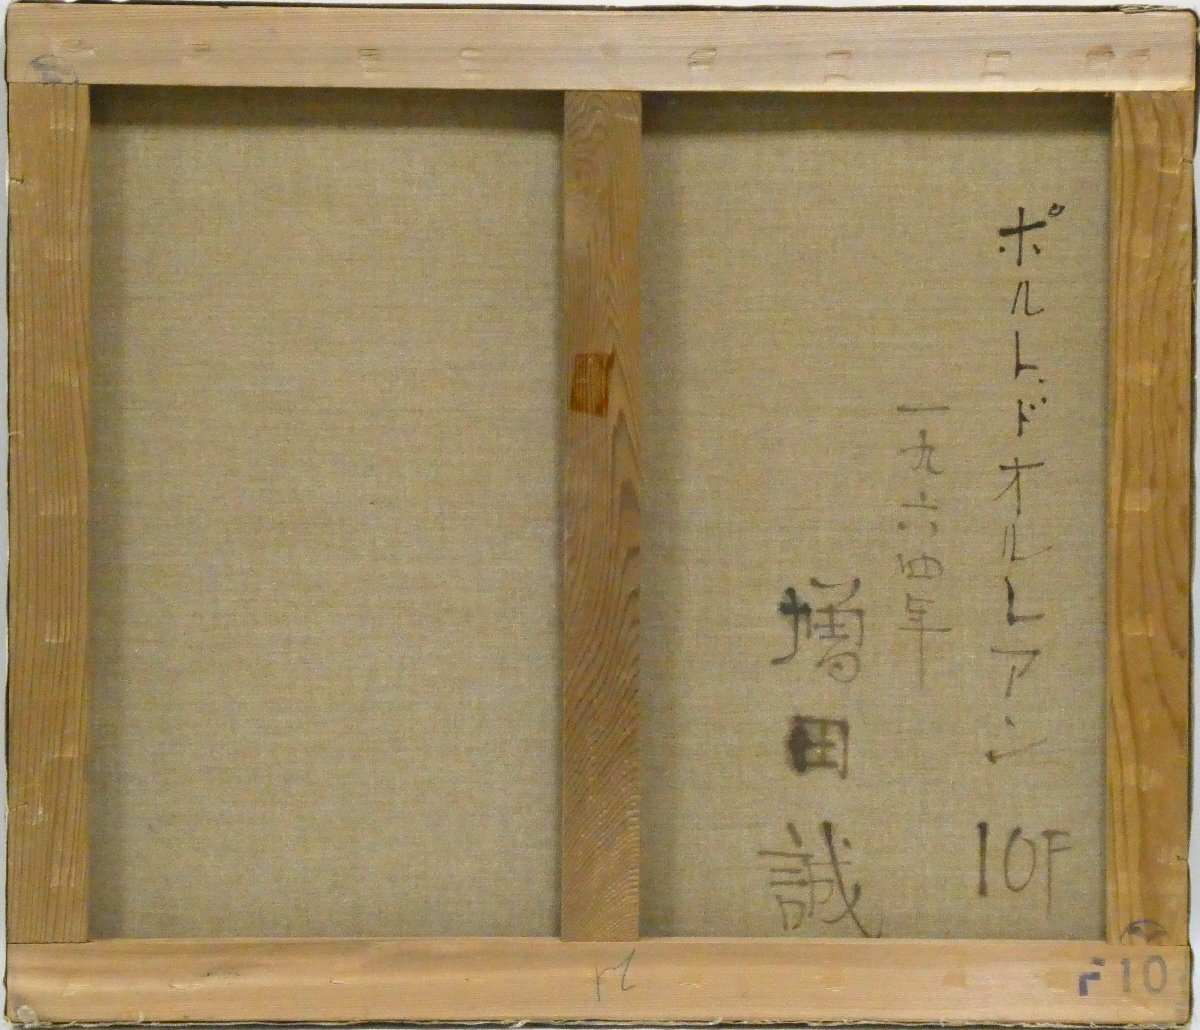 ポルトドオルレアン 10F
一九六四年
増田誠
F10